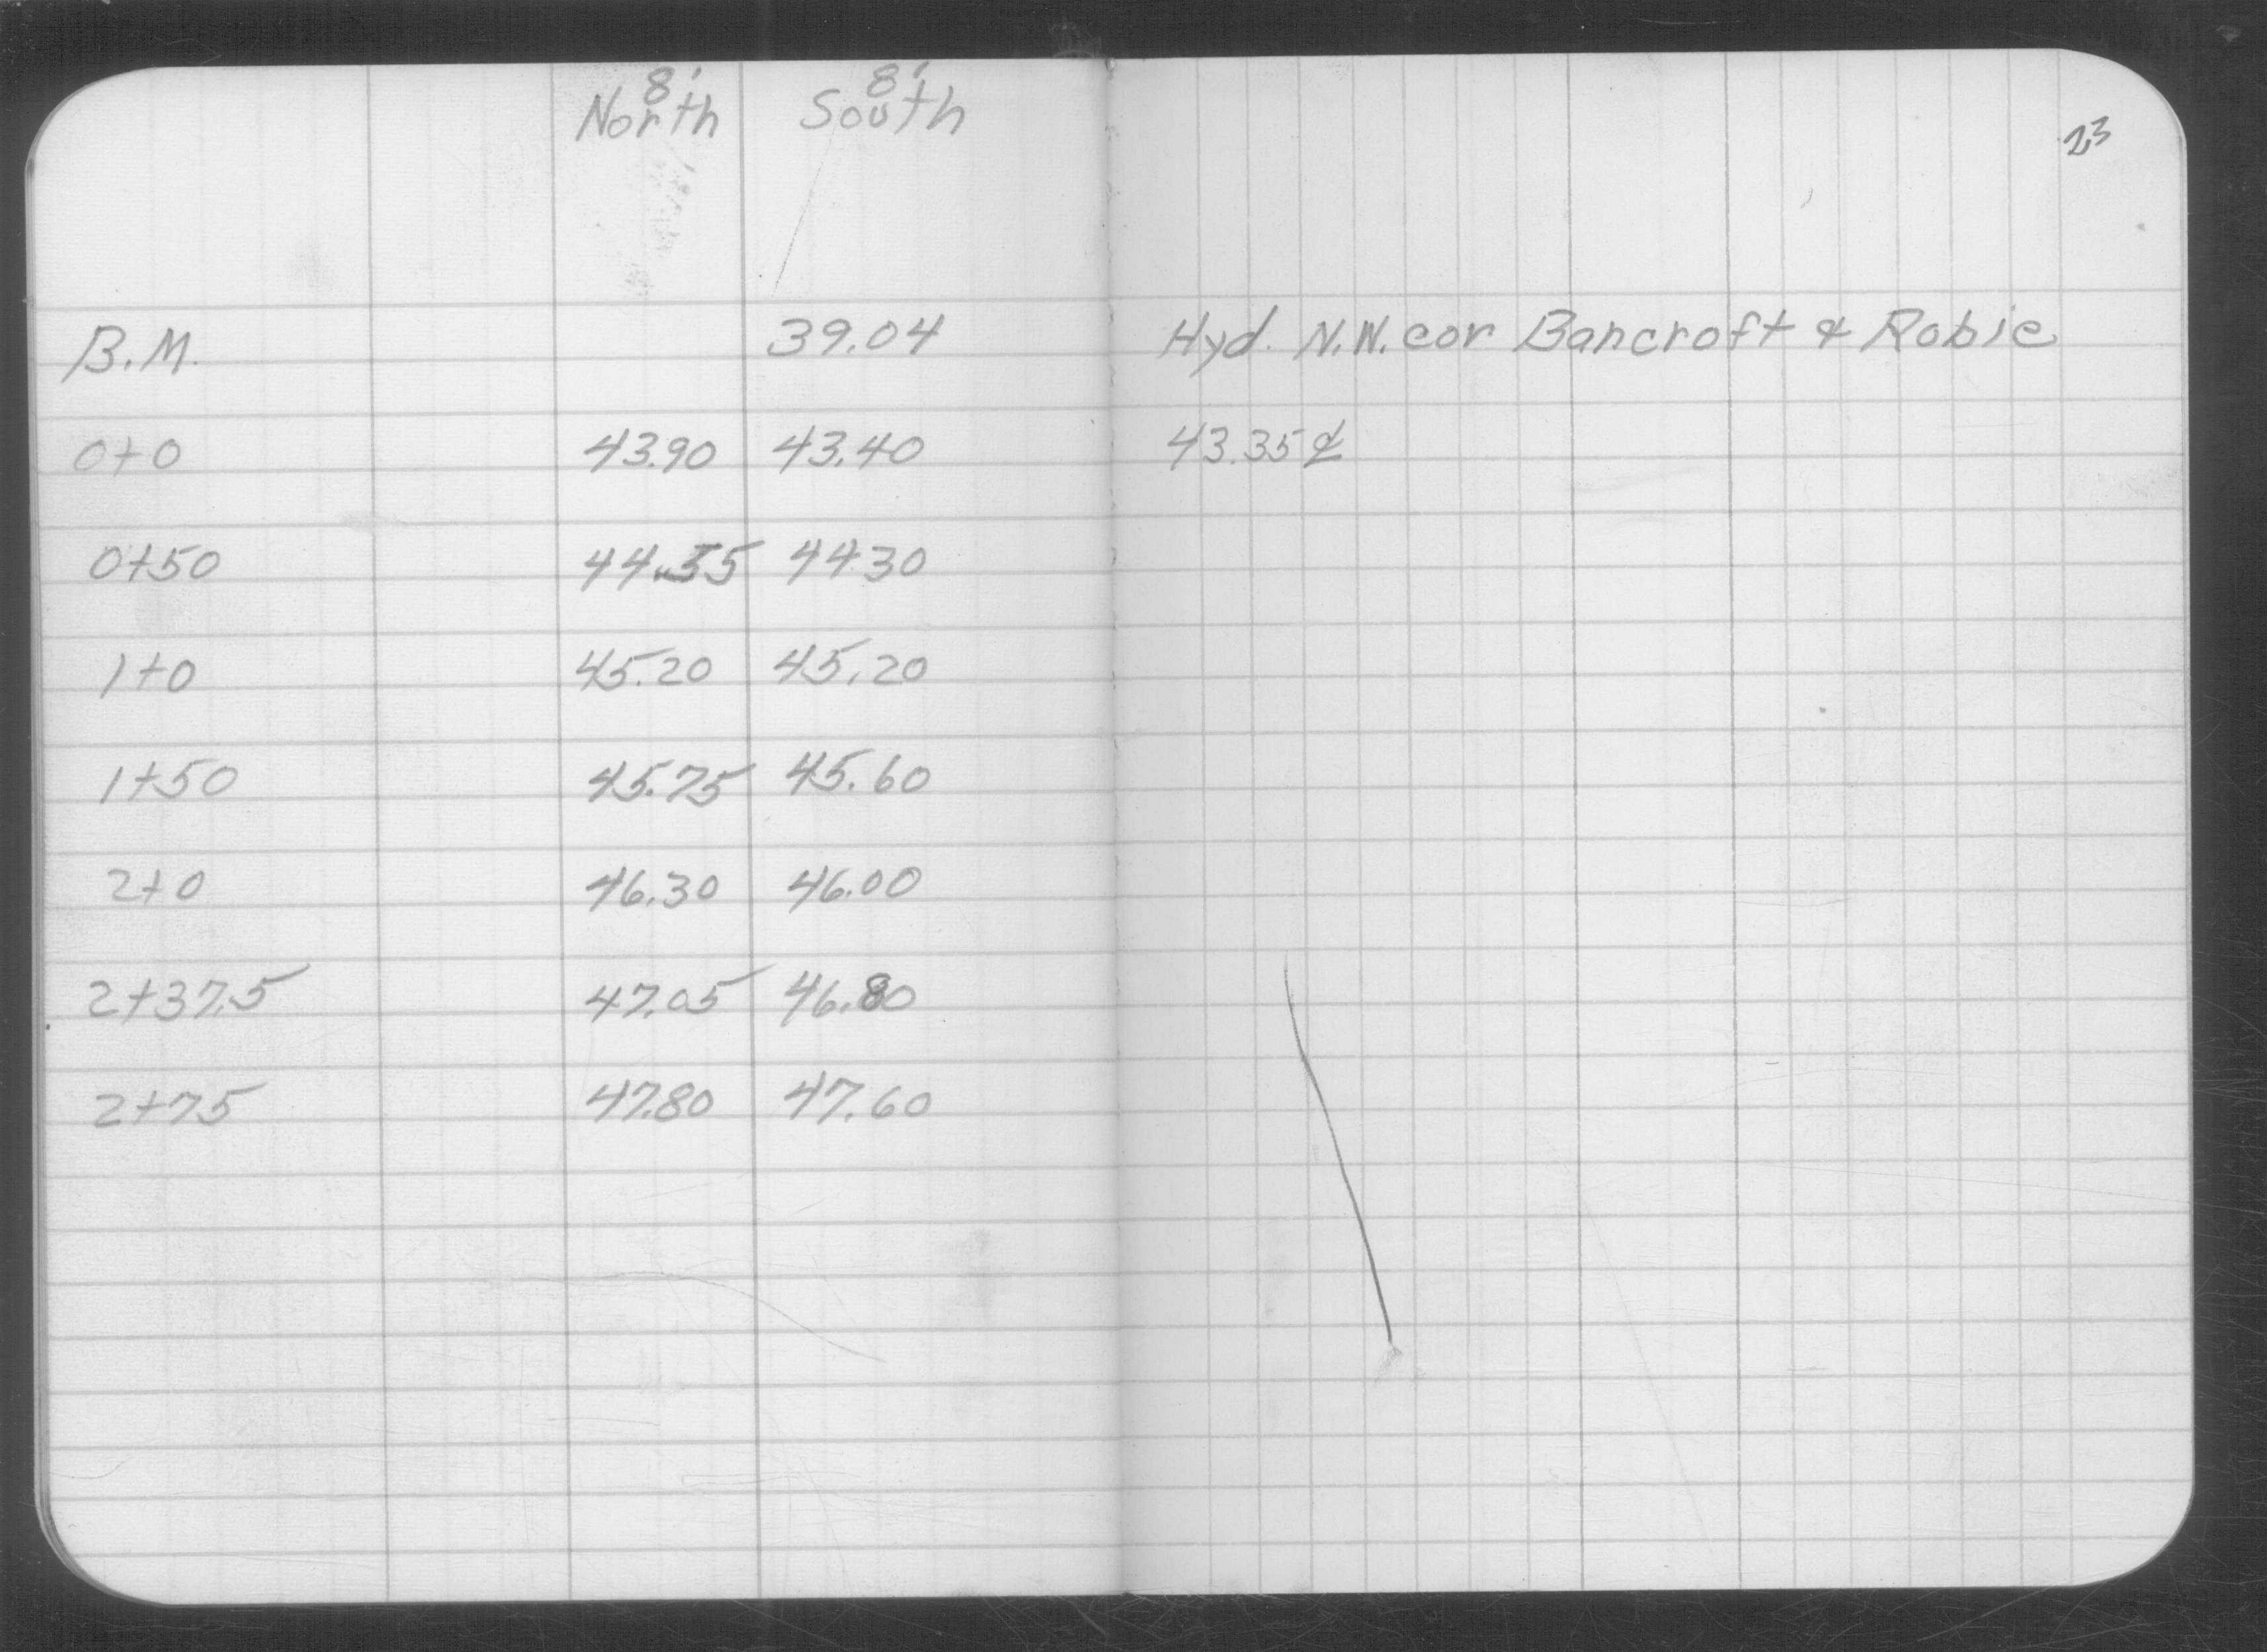 8' 8'
North South
23
B.M. 39.04 Hyd. N.W. cor Bancroft & Robie
0+0 43.90 43.40 43.35 ℄
0+50 44.55 44 30
1+0 45.20 45.20
1+50 45.75 45.60
2+0 46.30 46.00
2+37.5 47.05 46.80
2+75 47.80 47.60